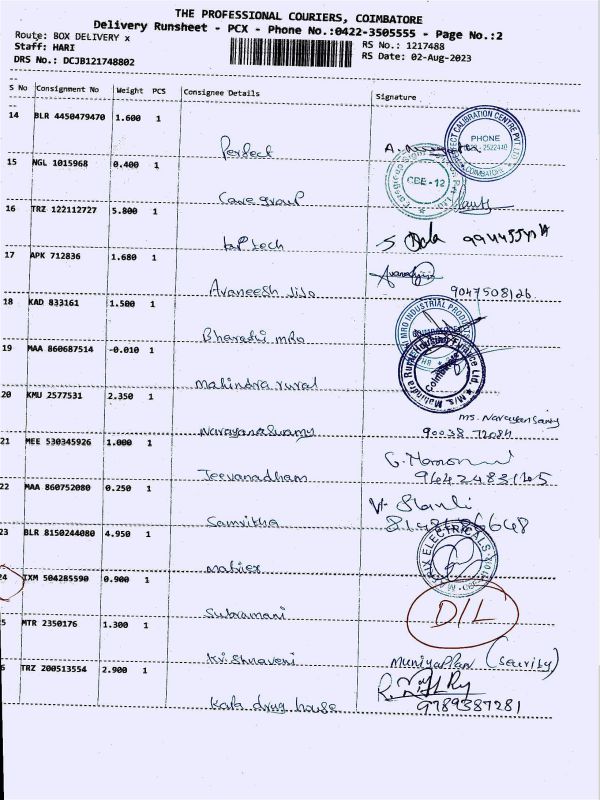 THE PROFESSIONAL COURIERS, COIMBATORE
Delivery Runsheet - PCX - Phone No.:0422-3505555 - Page No.:2
Route: BOX DELIVERY x
RS No.: 1217488
Staff: HARI
RS Date: 02-Aug-2023
DRS No.: DCJB121748802
S No Consignment No Weight PCS Consignee Details Signature
14 BLR 4450479470 1.600 1
Perfect
PHONE
COIMBATORE
15 NGL 1015968 0.400 1
Caregroup
CBE-12
16 TRZ 122112727 5.800 1
tech
17 APK 712836 1.680 1
Avaneesh
9047508126
18 KAD 833161 1.500 1
Bharathi mro
MRO INDUSTRIAL
19 MAA 860687514 -0.010 1
mahindra rural
M/s. Mahindra Rural Housing Finance Ltd.
Coimbatore
20 KMU 2577531 2.350 1
Narayanaswamy
ms. Narayanswamy
90038 72084
21 MEE 530345926 1.000 1
Jeevanadham
22 MAA 860752080 0.250 1
Samvitha
23 BLR 8150244080 4.950 1
ELECTRICALS
24 IXM 504285590 0.900 1
Subramani
D/L
5 MTR 2350176 1.300 1
Krishnaveni
muniyappan (Security)
6 TRZ 200513554 2.900 1
Kala drug house
9789387281